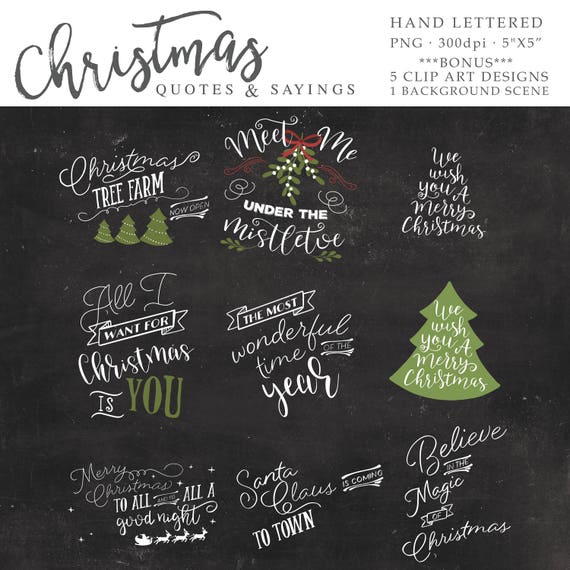 Christmas
QUOTES & SAYINGS
HAND LETTERED
PNG · 300dpi · 5"X5”
***BONUS***
5 CLIP ART DESIGNS
1 BACKGROUND SCENE
Christmas
TREE FARM
NOW OPEN
Meet Me
UNDER THE
mistletoe
We
wish
you A
Merry
Christmas
All I
WANT FOR
Christmas
IS YOU
THE MOST
wonderful
time OF THE
year
We
wish
you A
Merry
Christmas
Merry
Christmas
TO ALL AND TO ALL A
good night
Santa
Claus IS COMING
TO TOWN
Believe
IN THE
Magic
OF
Christmas